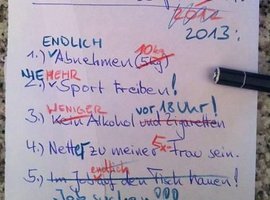 2012
2013:
ENDLICH 10kg
1.) Abnehmen (5kg)
NIE MEHR
2.) Sport treiben!
WENIGER vor 18 Uhr!
3.) Kein Alkohol und Zigaretten
4.) Netter zu meiner Ex-Frau sein.
endlich
5.) Im Job auf den Tisch hauen!
Job suchen!!!